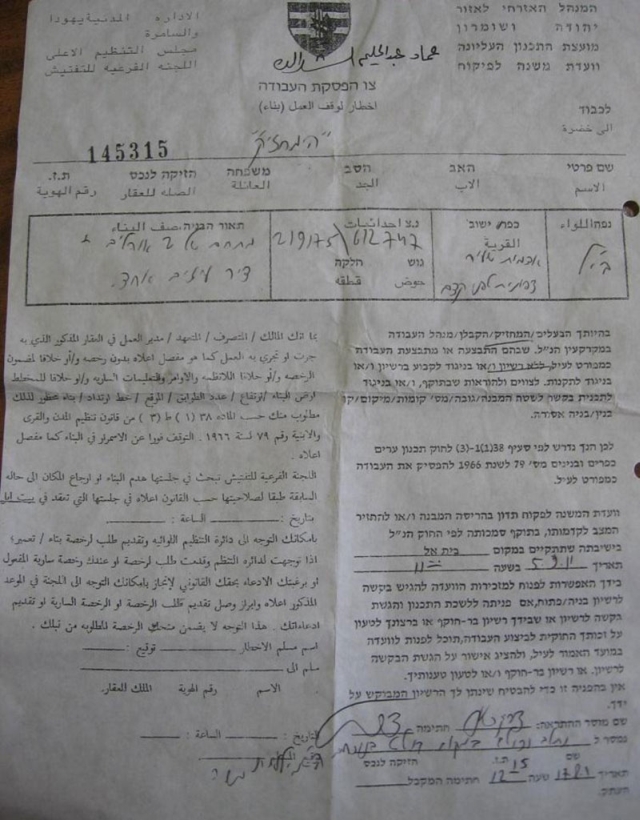 המנהל האזרחי לאזור
יהודה ושומרון
מועצת התכנון העליונה
וועדת משנה לפיקוח
الاداره المدنية يهودا
والسامرة
مجلس التنظيم الاعلى
اللجنه الفرعيه للتفتيش
عماد عبدالحليم
צו הפסקת העבודה
اخطار توقف العمل (بناء)
לכבוד
الى حضرة
"המחזיק"
145315
שם פרטי האב הסב משפחה הזיקה לנכס ת.ז.
الاسم الاب الجد العائلة الصله للعقار رقم الهوية
נפה\אללואא
ב"ל
כפר\ ישוב
القرية
נ.צ\احداثيات
219175\612747
גוש חלקה
حوض قطعه
תאור הבניה\صف البناء
בהיותך הבעלים/המחזיק/הקבלן/מנהל העבודה
במקרקעין הנ"ל, שבהם התבצעה או מתבצעת העבודה
כמפורט לעיל, ללא רשיון ו/או בניגוד לקבוע ברשיון ו/או
בניגוד לתקנות, לצווים ולהוראות שבתוקף, ו/או בניגוד
לתכנית בקשר לשטח המבנה/גובה/מס' קומות/מיקום/קו
בנין/בניה אסורה.
לכן הנך נדרש לפי סעיף 38(1)-(3) לחוק תכנון ערים
כפרים ובנינים מס' 79 לשנת 1966 להפסיק את העבודה
כמפורט לעיל.
וועדת המשנה לפקוח תדון בהריסה המבנה ו/או להחזיר
המצב לקדמותו, בתוקף סמכותה לפי החוק הנ"ל
בישיבתה שתתקיים במקום בית אל
תאריך 5.9.11 בשעה 11
בידך האפשרות לפנות למזכירות הוועדה להגיש בקשה
לרשיון בניה/פתוח, אם פניתה ללשכת התכנון והגשת
בקשה לרשיון או שבידך רשיון בר-תוקף או ברצונך לטעון
על זכותך החוקית לביצוע העבודה, תוכל לפנות לוועדה
במועד האמור לעיל, ולהציג אישור על הגשת הבקשה
לרשיון, או רשיון בר-תוקף ו/או לטעון טענותיך.
אין בהפניה זו כדי להבטיח שינתן לך הרשיון המבוקש על
ידך.
שם מוסר ההתראה: חתימה
נמסר ל
שם ת.ז. הזיקה לנכס
תאריך שעה חתימה המקבל
העתק:
بما انك المالك / المتصرف / المتعهد / مدير العمل في العقار المذكور الذي به
جرت او تجري به العمل كما هو مفصل اعلاه بدون رخصه و/أو خلافا لمضمون
الرخصه و/أو خلافا للانظمه والاوامر والتعليمات الساريه و/او خلافا للمخطط
ارض البناء /ارتفاع / عدد الطوابق / الموقع / خط ارتداد/ بناء محظور لذلك
مطلوب منك حسب الماده ٣٨ (١) ط (٣) من قانون تنظيم المدن والقرى
والابنية رقم ٧٩ لسنة ١٩٦٦ . التوقف فورا عن الاستمرار في البناء كما مفصل
اعلاه .
اللجنة الفرعية للتفتيش تبحث في جلستها هدم البناء او ارجاع المكان الى حاله
السابقة طبقا لصلاحيتها حسب القانون اعلاه في جلستها التي تعقد في بيت ايل
بتاريخ : الساعة :
بامكانك التوجه الى دائرة التنظيم اللوائيه وتقديم طلب لرخصة بناء / تعمير؛
اذا توجهت لدائره التنظيم وقدمت طلب لرخصة او عندك رخصة سارية المفعول
او برغبتك الادعاء بحقك القانوني لإنجاز بامكانك التوجه الى اللجنة في الموعد
المذكور اعلاه وابراز وصل تقديم طلب الرخصة او الرخصة السارية او تقديم
ادعاءاتك . هذا التوجه لا يضمن منحك الرخصة المطلوبه من قبلك .
اسم مسلم الاخطار توقيع :
مسلم الى
الاسم رقم الهوية المالك للعقار
التاريخ : الساعة :